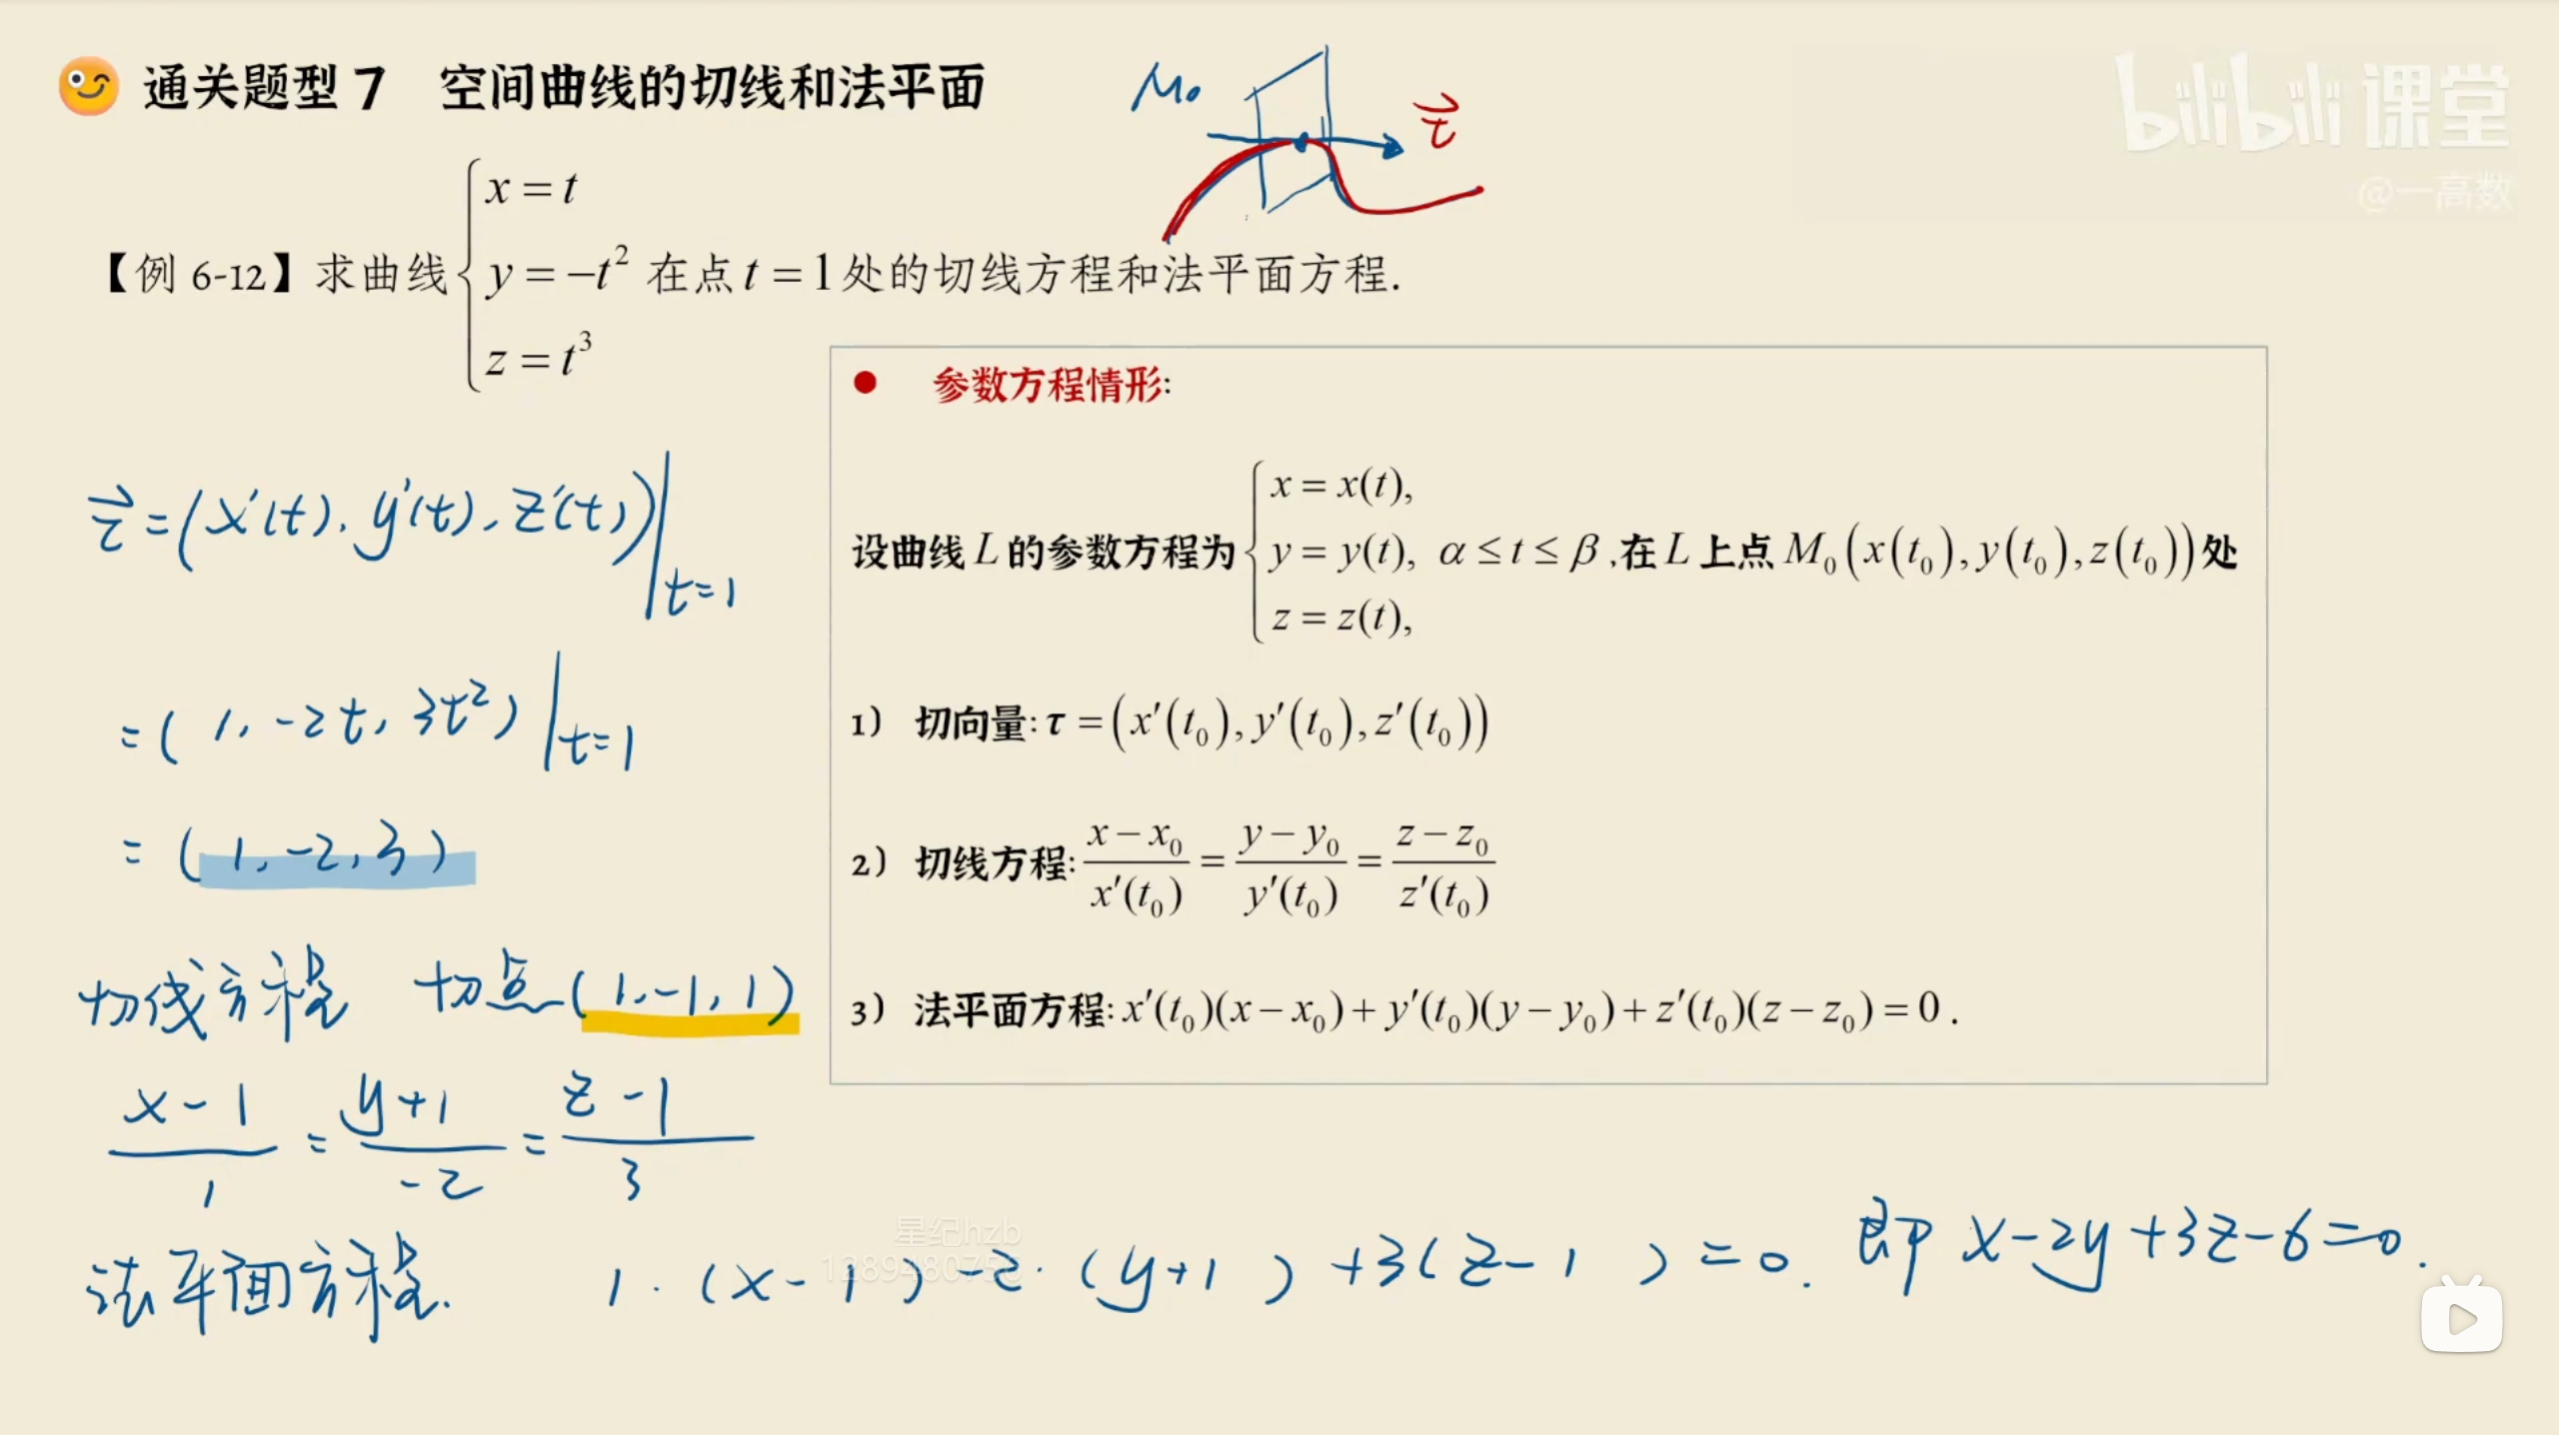 通关题型 7 空间曲线的切线和法平面
M₀
τ⃗
bilibili 课堂
@一高数
【例 6-12】求曲线 { x = t, y = −t², z = t³ 在点 t = 1 处的切线方程和法平面方程.
τ⃗ = (x'(t), y'(t), z'(t))|t=1
= (1, -2t, 3t²)|t=1
= (1, -2, 3)
切线方程 切点(1, -1, 1)
(x-1)/1 = (y+1)/-2 = (z-1)/3
法平面方程. 1·(x-1)-2·(y+1)+3(z-1)=0. 即 x-2y+3z-6=0.
● 参数方程情形:
设曲线 L 的参数方程为 { x = x(t), y = y(t), z = z(t), α ≤ t ≤ β ,在 L 上点 M₀(x(t₀), y(t₀), z(t₀)) 处
1) 切向量: τ = (x′(t₀), y′(t₀), z′(t₀))
2) 切线方程: (x − x₀)/x′(t₀) = (y − y₀)/y′(t₀) = (z − z₀)/z′(t₀)
3) 法平面方程: x′(t₀)(x − x₀) + y′(t₀)(y − y₀) + z′(t₀)(z − z₀) = 0 .
星纪hzb